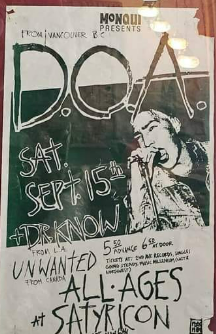 MONQUI
PRESENTS
FROM VANCOUVER B.C.
D.O.A.
SAT.
SEPT. 15th
+ DR. KNOW
FROM L.A.
5.50 ADVANCE 6.50 AT DOOR
UNWANTED
FROM CANADA
ALL·AGES
AT SATYRICON